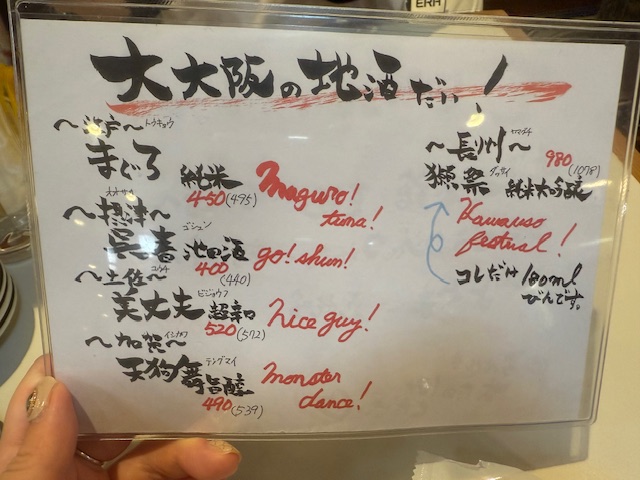 ERH
大大阪の地酒だい!
～江戸～ トウキョウ
まぐろ 純米
450(495)
Maguro!
tuna!
～摂津～ オオサカ
呉春 ゴシュン 池田の酒
400
(440)
go! shun!
～土佐～ コウチ
美丈夫 ビジョウフ 超辛口
520(572)
Nice guy!
～加賀～ イシカワ
天狗舞 テングマイ 旨醇
490(539)
monster
dance!
～長州～ ヤマグチ
980(1078)
獺祭 ダッサイ 純米大吟醸
Kawauso
festival!
コレだけ180ml
びんです。